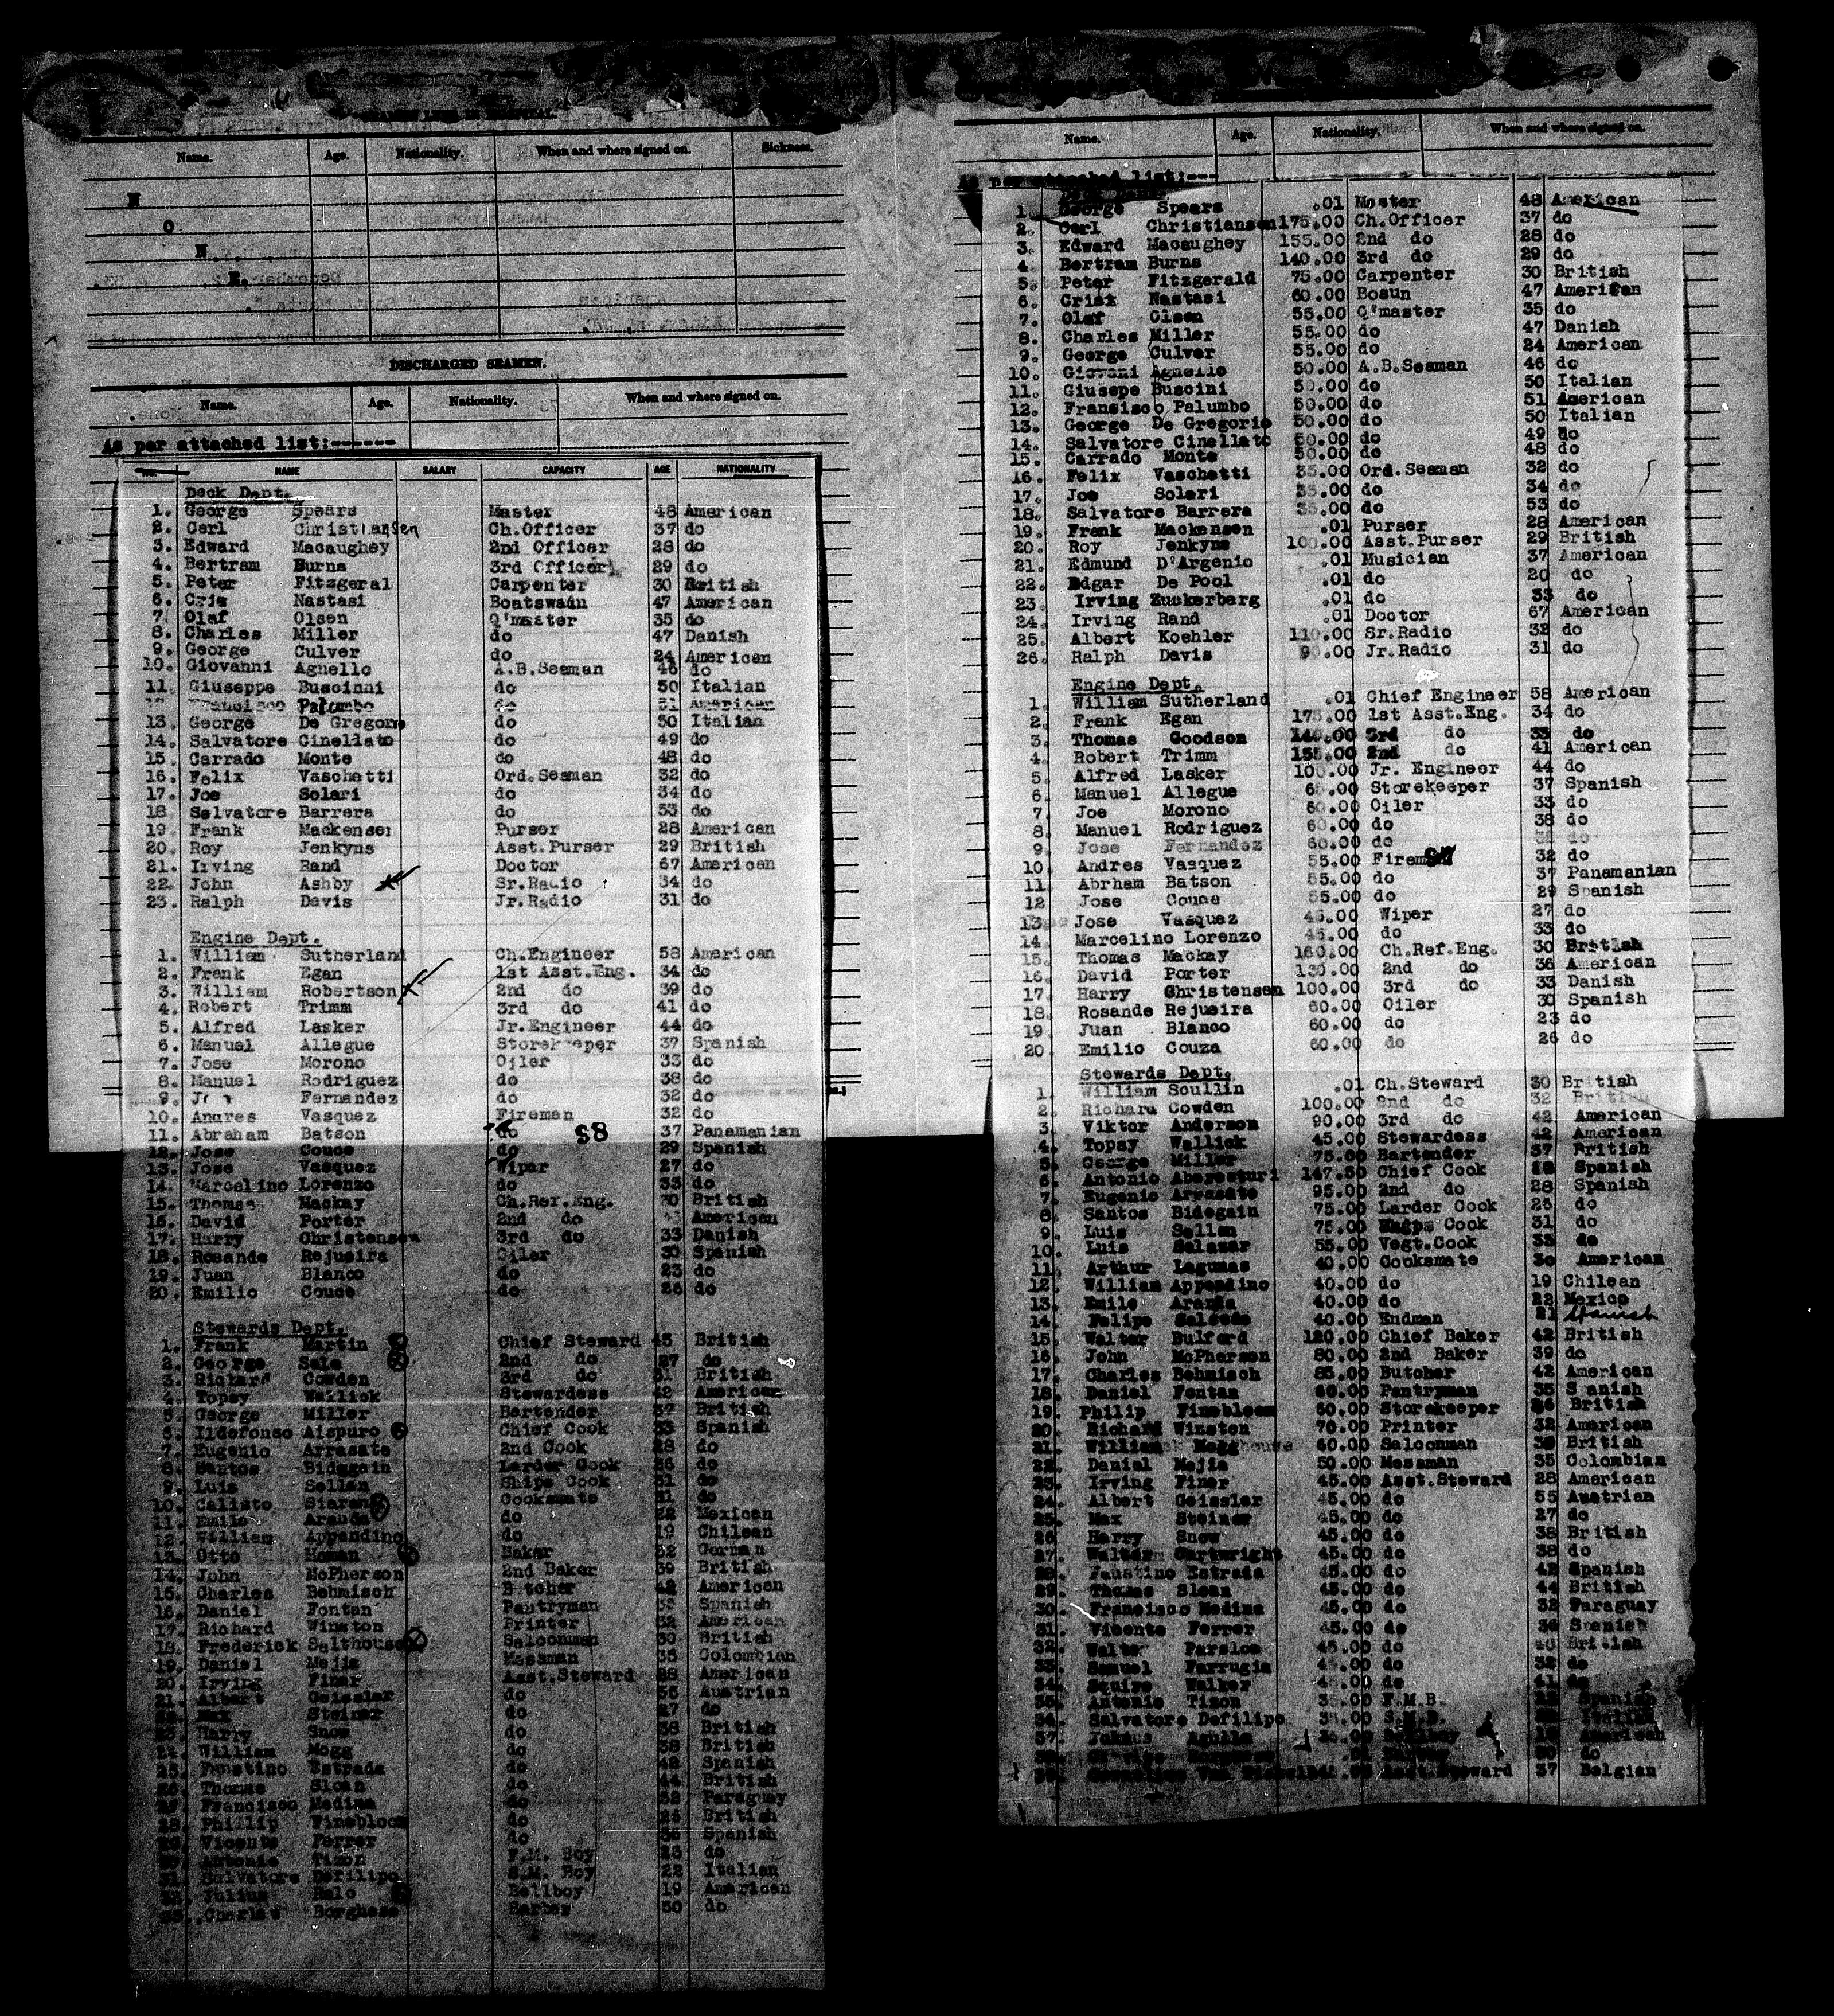 SEAMEN LEFT IN HOSPITAL.
Name. Age. Nationality. When and where signed on. Sickness.
N
O
N
E.
DISCHARGED SEAMEN.
Name. Age. Nationality. When and where signed on.
As per attached list:------
NO. NAME SALARY CAPACITY AGE NATIONALITY
Deck Dept.
1. George Spears Master 48 American
2. Carl Christiansen Ch.Officer 37 do
3. Edward Macaughey 2nd Officer 28 do
4. Bertram Burns 3rd Officer 29 do
5. Peter Fitzgeral Carpenter 30 British
6. Cris Nastasi Boatswain 47 American
7. Olaf Olsen Q'master 35 do
8. Charles Miller do 47 Danish
9. George Culver do 24 American
10. Giovanni Agnello A.B.Seaman 46 do
11. Giuseppe Buscinni do 50 Italian
Francisco Palumbo do 51 American
13. George De Gregorio do 50 Italian
14. Salvatore Cinellato do 49 do
15. Carrado Monte do 48 do
16. Felix Vaschetti Ord.Seaman 32 do
17. Joe Solari do 34 do
18 Salvatore Barrera do 53 do
19. Frank Mackensen Purser 28 American
20. Roy Jenkyns Asst.Purser 29 British
21. Irving Rand Doctor 67 American
22. John Ashby Sr.Radio 34 do
23. Ralph Davis Jr.Radio 31 do
Engine Dept.
1. William Sutherland Ch.Engineer 58 American
2. Frank Egan 1st Asst.Eng. 34 do
3. William Robertson 2nd do 39 do
4. Robert Trimm 3rd do 41 do
5. Alfred Lasker Jr.Engineer 44 do
6. Manuel Allegue Storekeeper 37 Spanish
7. Jose Morono Oiler 33 do
8. Manuel Rodriguez do 38 do
9. Fernandez do 32 do
10. Andres Vasquez Fireman 32 do
11. Abraham Batson do 37 Panamanian
98
12. Jose Couce do 29 Spanish
13. Jose Vasquez Wiper 27 do
14. Marcelino Lorenzo do 33 do
15. Thomas Mackay Ch.Ref.Eng. 30 British
16. David Porter 2nd do American
17. Harry Christensen 3rd do 33 Danish
18. Rosando Rejueira Oiler 30 Spanish
19. Juan Blanco do 23 do
20. Emilio Couce do 26 do
Stewards Dept.
1. Frank Martin Chief Steward 45 British
2. George Sale 2nd do 27 do
3. Richard Cowden 3rd do 31 British
4. Topsy Wallick Stewardess 42 American
5. George Miller Bartender 37 British
6. Ildefonso Aispuro Chief Cook 33 Spanish
7. Eugenio Arrasate 2nd Cook 28 do
8. Santos Bidegain Larder Cook 26 do
9. Luis Sellan Ships Cook 31 do
10. Calisto Cooksmate 31 do
11. Emilo Aranda do 22 Mexican
12. William Appendino do 19 Chilean
13. Otto Homan Baker 32 German
14. John McPherson 2nd Baker 39 British
15. Charles Behmisch Butcher 42 American
16. Daniel Fontan Pantryman 35 Spanish
17. Richard Winston Printer 32 American
18. Frederick Salthouse Saloonman 30 British
19. Daniel Mejia Messman 35 Colombian
20. Irving Finer Asst.Steward 28 American
21. Albert Geissler do 55 Austrian
22. Max Steiner do 27 do
23. Harry Snow do 38 British
24. William Mogg do 38 British
25. Faustino Estrada do 42 Spanish
26. Thomas Sloan do 44 British
27. Francisco Medina do 32 Paraguay
28. Phillip Finebloom do 26 British
29. Vicente Ferrer do 36 Spanish
30. Antonio Tizon F.M. Boy 23 do
31. Salvatore Defilipo S.M. Boy 22 Italian
32. Julius Halo Bellboy 19 American
33. Charles Borghese Barber 50 do
Name. Age. Nationality. When and where signed on.
As per attached list:---
1. George Spears .01 Master 48 American
2. Carl Christiansen 175.00 Ch.Officer 37 do
3. Edward Macaughey 155.00 2nd do 28 do
4. Bertram Burns 140.00 3rd do 29 do
5. Peter Fitzgerald 75.00 Carpenter 30 British
6. Crisk Nastasi 60.00 Bosun 47 American
7. Olaf Olsen 55.00 Q'master 35 do
8. Charles Miller 55.00 do 47 Danish
9. George Culver 55.00 do 24 American
10. Giovani Agnello 50.00 A.B.Seaman 46 do
11. Giusepe Buscini 50.00 do 50 Italian
12. Francisco Palumbo 50.00 do 51 American
13. George De Gregorio 50.00 do 50 Italian
14. Salvatore Cinellato 50.00 do 49 do
15. Carrado Monte 50.00 do 48 do
16. Felix Vaschetti 35.00 Ord.Seaman 32 do
17. Joe Solari 35.00 do 34 do
18. Salvatore Barrera 35.00 do 53 do
19. Frank Mackensen .01 Purser 28 American
20. Roy Jenkyns 100.00 Asst.Purser 29 British
21. Edmund D'Argenio .01 Musician 37 American
22. Edgar De Pool .01 do 20 do
23. Irving Zuckerberg .01 do 33 do
24. Irving Rand .01 Doctor 67 American
25. Albert Koehler 110.00 Sr.Radio 32 do
26. Ralph Davis 90.00 Jr.Radio 31 do
Engine Dept.
1. William Sutherland .01 Chief Engineer 58 American
2. Frank Egan 175.00 1st Asst.Eng. 34 do
3. Thomas Goodson 140.00 3rd do 33 do
4. Robert Trimm 155.00 2nd do 41 American
5. Alfred Lasker 100.00 Jr. Engineer 44 do
6. Manuel Allegue 65.00 Storekeeper 37 Spanish
7. Joe Morono 60.00 Oiler 33 do
8. Manuel Rodriguez 60.00 do 38 do
9. Jose Fernandez 60.00 do 32 do
10. Andres Vasquez 55.00 Fireman 32 do
11. Abrham Batson 55.00 do 37 Panamanian
12 Jose Couce 55.00 do 29 Spanish
13. Jose Vasquez 45.00 Wiper 27 do
14. Marcelino Lorenzo 45.00 do 33 do
15. Thomas Mackay 160.00 Ch.Ref.Eng. 30 British
16. David Porter 130.00 2nd do 36 American
17. Harry Christensen 100.00 3rd do 33 Danish
18. Rosande Rejueira 60.00 Oiler 30 Spanish
19. Juan Blanco 60.00 do 23 do
20. Emilio Couza 60.00 do 26 do
Stewards Dept.
1. William Soullin .01 Ch.Steward 30 British
2. Richard Cowden 100.00 2nd do 32 British
3. Viktor Anderson 90.00 3rd do 42 American
4. Topsy Wallick 45.00 Stewardess 42 American
5. George Miller 75.00 Bartender 37 British
6. Antonio Aberesturi 147.50 Chief Cook Spanish
7. Eugenio Arrasate 95.00 2nd do 28 Spanish
8. Santos Bidegain 75.00 Larder Cook 26 do
9. Luis Sellan 75.00 Ships Cook 31 do
10. Luis Salazar 55.00 Vegt.Cook 33 do
11. Arthur Lagumas 40.00 Cooksmate 30 American
12. William Appendino 40.00 do 19 Chilean
13. Emilo Aranda 40.00 do 22 Mexico
14. Felipe Salcedo 40.00 Endman 21 Spanish
15. Walter Bulford 120.00 Chief Baker 42 British
16. John McPherson 80.00 2nd Baker 39 do
17. Charles Behmisch 85.00 Butcher 42 American
18. Daniel Fontan 60.00 Pantryman 35 Spanish
19. Philip Finebloom 50.00 Storekeeper 26 British
20. Richard Winston 70.00 Printer 32 American
21. William Mogg 60.00 Saloonman British
22. Daniel Mejia 50.00 Messman 35 Colombian
23. Irving Finer 45.00 Asst.Steward 28 American
24. Albert Geissler 45.00 do 55 Austrian
25. Max Steiner 45.00 do 27 do
26 Harry Snow 45.00 do 38 British
27. Walter Cartwright 45.00 do 38 do
28. Faustino Estrada 45.00 do 42 Spanish
29. Thomas Sloan 45.00 do 44 British
30. Francisco Medina 45.00 do 32 Paraguay
31. Vicente Ferrer 45.00 do 36 Spanish
32. Walter Parsloe 45.00 do British
33. Samuel Farrugia 45.00 do 32 do
34. Squire Walker 45.00 do 41 do
35. Antonio Tizon 35.00 F.M.B. 23 Spanish
36. Salvatore Defilipo 35.00 S.M.B. Italian
37. American
.01 do
Asst.Steward 37 Belgian